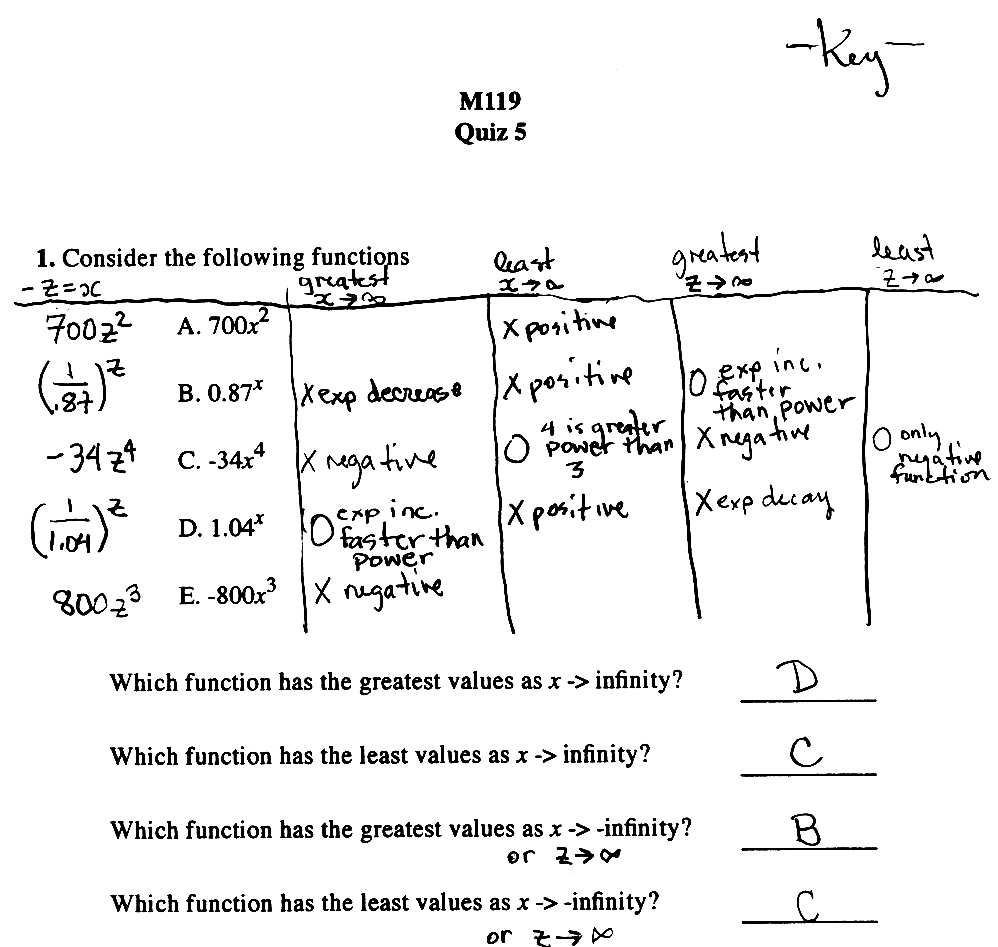 -Key-
M119
Quiz 5
1. Consider the following functions
-z=x
greatest x→∞
least x→∞
greatest z→∞
least z→∞
700z² A. 700x² X positive
(1/.87)^z B. 0.87^x X exp decrease X positive O exp inc. faster than power
-34z⁴ C. -34x⁴ X negative O 4 is greater power than 3 X negative O only negative function
(1/1.04)^z D. 1.04^x O exp inc. faster than power X positive X exp decay
800z³ E. -800x³ X negative
Which function has the greatest values as x -> infinity? D
Which function has the least values as x -> infinity? C
Which function has the greatest values as x -> -infinity? B
or z→∞
Which function has the least values as x -> -infinity? C
or z→∞